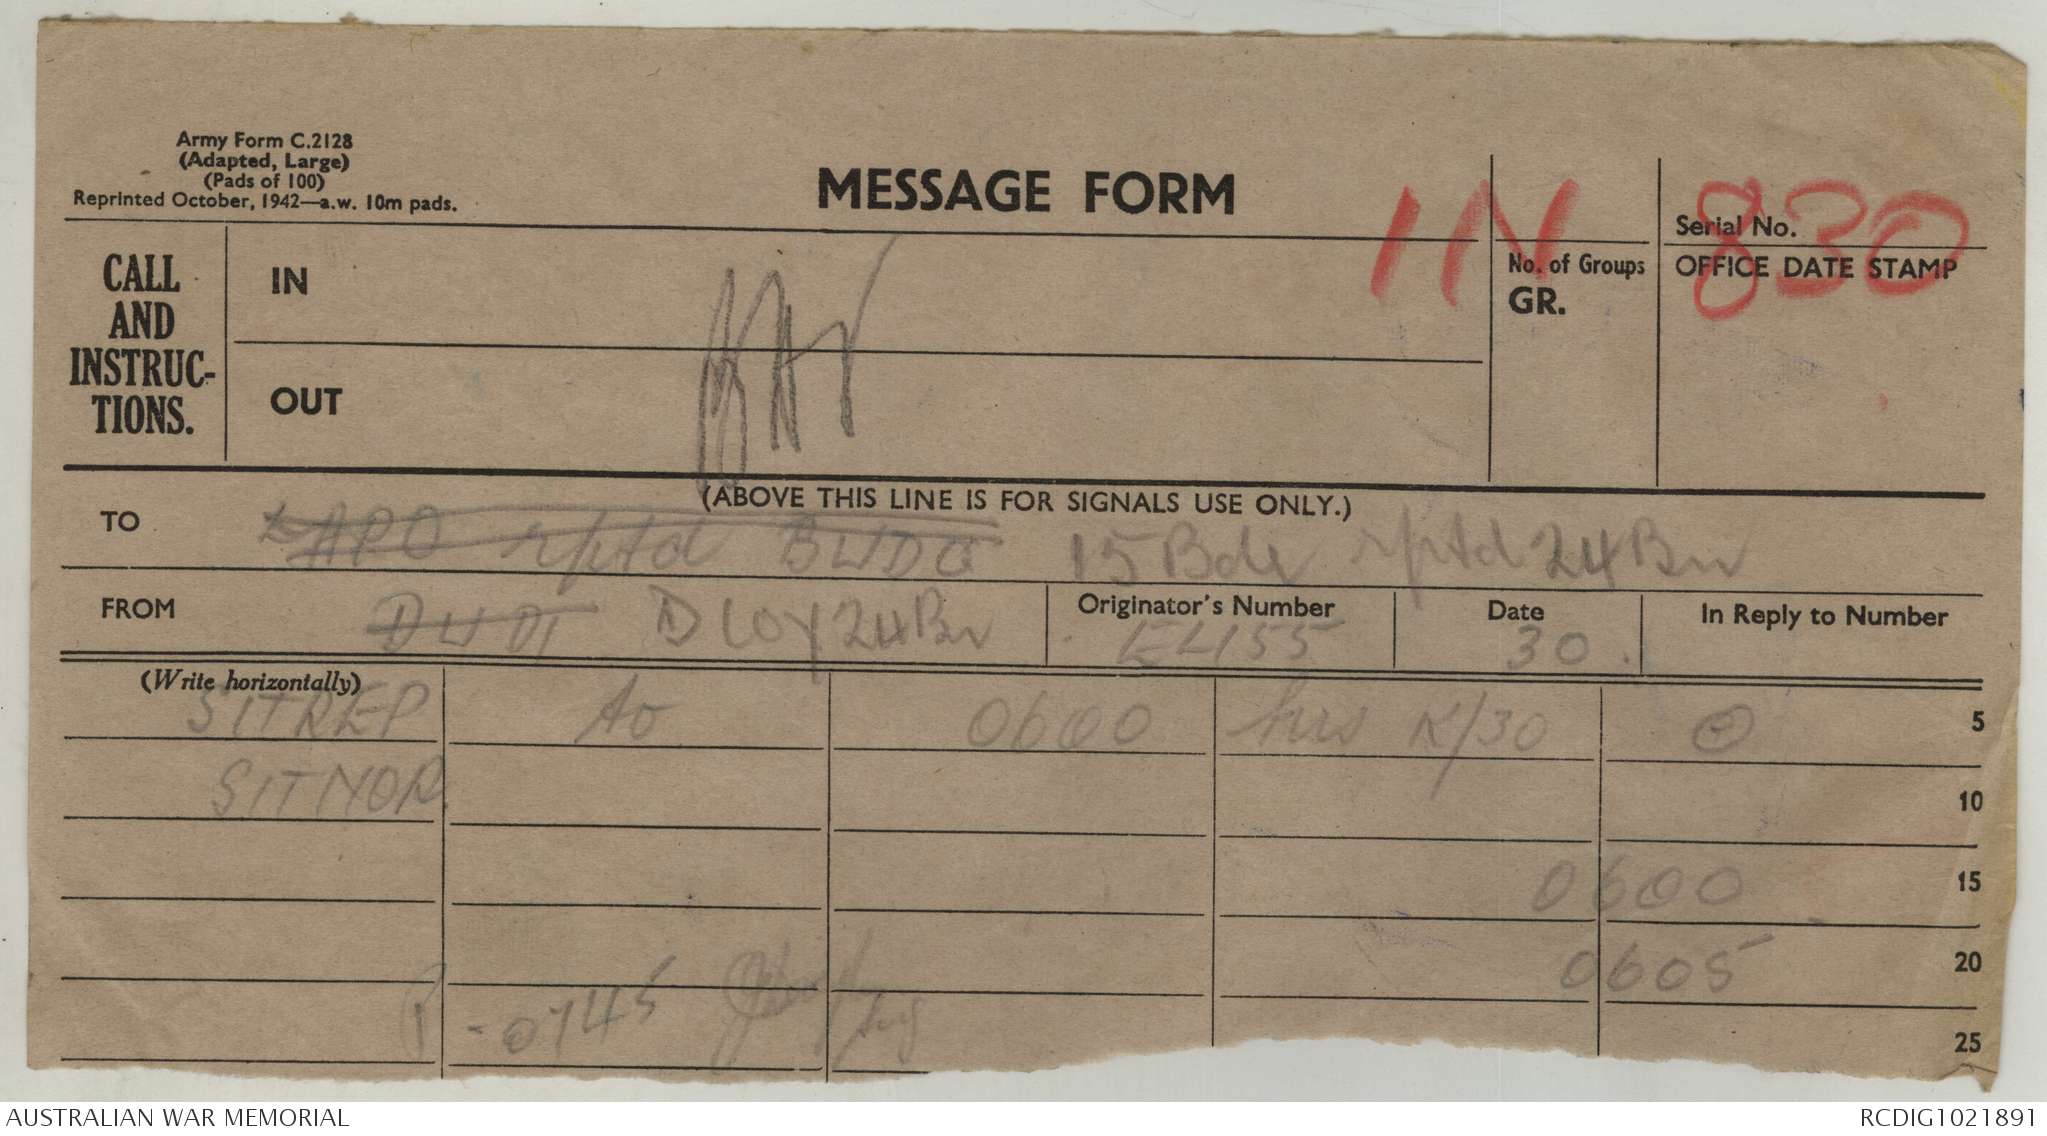 Army Form C.2128
(Adapted, Large)
(Pads of 100)
Reprinted October, 1942—a.w. 10m pads.
MESSAGE FORM
IN
Serial No. 830
CALL AND INSTRUC-TIONS.
IN
OUT
No. of Groups
GR.
OFFICE DATE STAMP
(ABOVE THIS LINE IS FOR SIGNALS USE ONLY.)
TO rptd 15 Bde rptd 24 Bn
FROM 24 Bn
Originator's Number
Date 30
In Reply to Number
(Write horizontally)
SITREP 0600 hrs K/30 5
SITNOR 10
0600 15
0605 20
-0745
25
AUSTRALIAN WAR MEMORIAL
RCDIG1021891